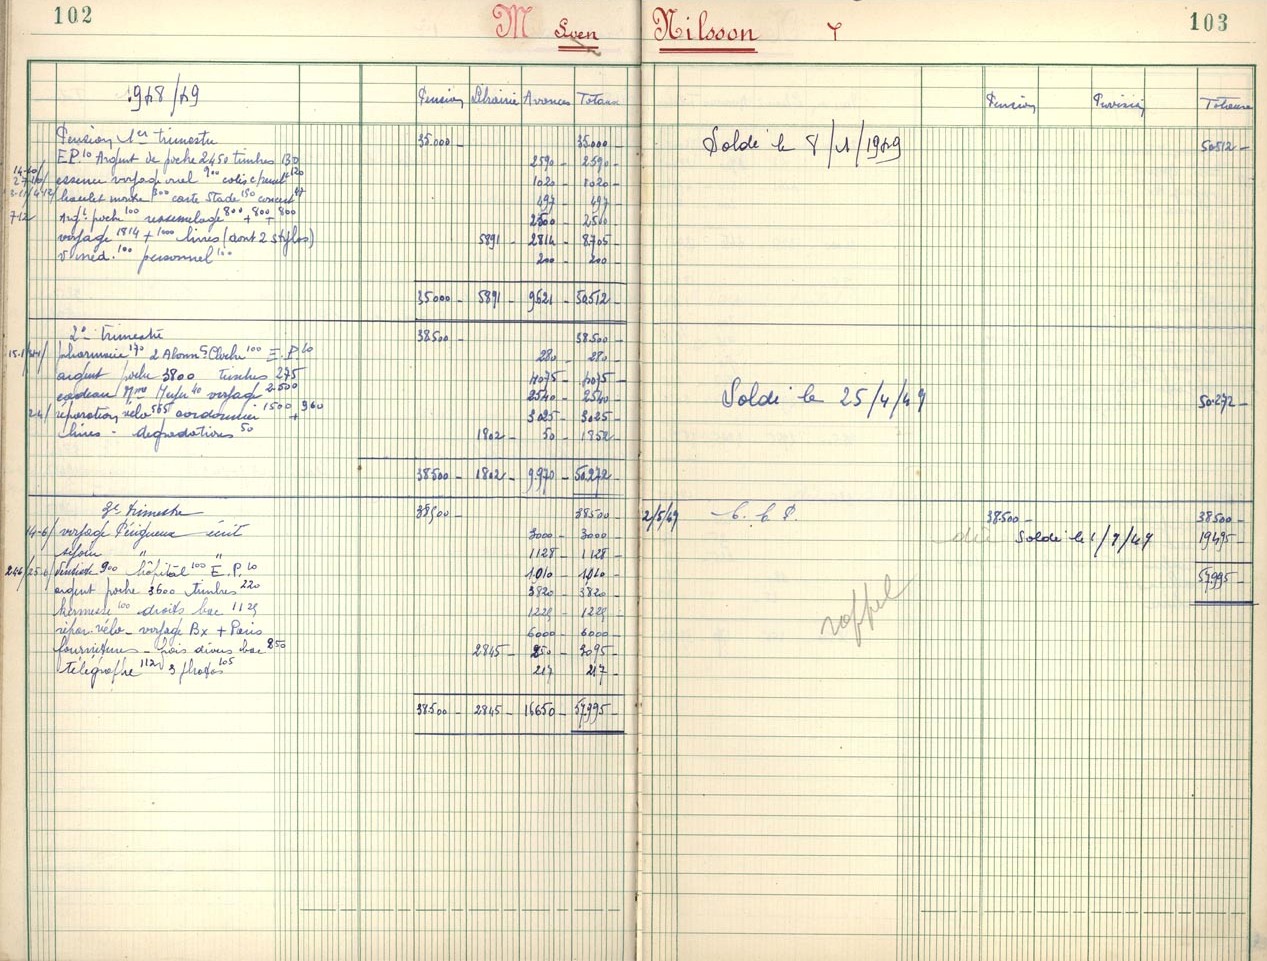 102
M Sven Nilsson
103
1948/49
Pension Librairie Avances Totaux
Pension Provision Totaux
Pension 1er trimestre 35.000 - 35.000 -
Soldé le 8/1/1949 50512 -
E.P. 10 Argent de poche 2450 timbres 130 2590 - 2590 -
essence voyage 900 colis 120 1020 - 1020 -
bracelet montre 300 carte Stade 150 concert 47 497 - 497 -
7-12 Argt poche 100 ressemelage 800 + 800 + 800 2500 - 2500 -
voyage 1814 + 1000 livres (dont 2 stylos) 5891 - 2814 - 8705 -
v. méd. 100 personnel 100 200 - 200 -
35000 - 5891 - 9621 - 50.512 -
2e trimestre 38500 - 38.500 -
pharmacie 170 2 Abonts Cloche 100 E.P. 10 280 - 280 -
argent poche 3800 timbres 275 4075 - 4075 -
cadeau Mme 40 voyage 2.500 2540 - 2540 -
Soldé le 25/4/49 50.272 -
réparation vélo 565 cordonnier 1500 + 960 3025 - 3025 -
livres - dégradations 50 1802 - 50 - 1852 -
38500 - 1802 - 9.970 - 50.272 -
3e trimestre 38500 - 38500 -
2/5/49 C.C.P. 38.500 - 38.500 -
14-6/ voyage Périgueux écrit 3000 - 3000 -
dû Soldé le 1/7/49 19495 -
séjour " " 1128 - 1128 -
24-6/25-6/ 900 hôpital 100 E.P. 10 1.010 - 1.010 -
57.995 -
argent poche 3600 timbres 220 3820 - 3820 -
kermesse 100 droits bac 1125 1225 - 1225 -
répar. vélo - voyage Bx + Paris 6000 - 6000 -
rappel
fournitures - frais divers bac 250 2845 - 250 - 3095 -
télégraphe 112 3 photos 105 217 - 217 -
38500 - 2845 - 16650 - 57.995 -